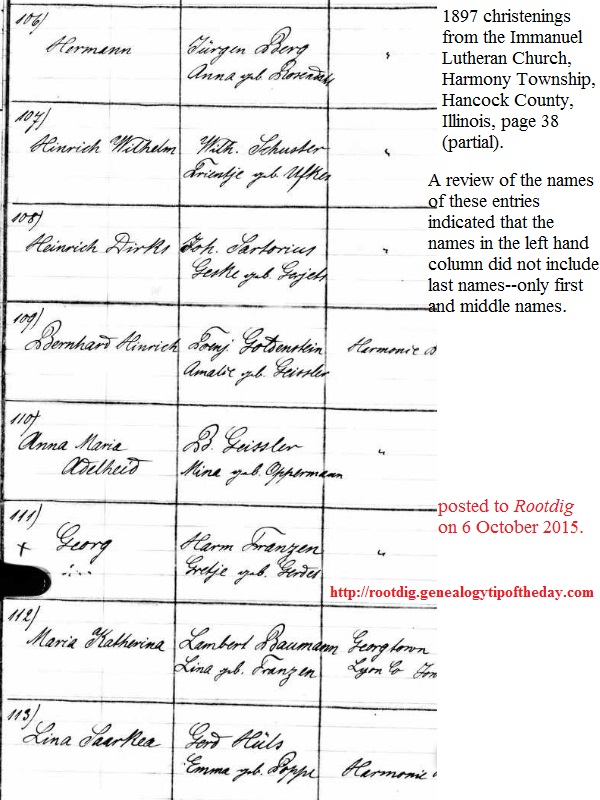 106)
Hermann
Jürgen Berg
Anna geb. Rosendahl
"
107)
Hinrich Wilhelm
Wilh. Schuster
Trientje geb. Ufkes
"
108)
Heinrich Dirks
Joh. Sartorius
Geske geb. Gerjets
"
109)
Bernhard Hinrich
Harmonie
Goldenstein
Amalie geb. Geissler
110)
Anna Maria
Adelheid
B. Geissler
Mina geb. Oppermann
"
111)
Georg
Harm Franzen
Gretje geb. Gerdes
"
112)
Maria Katherina
Lambert Baumann
Lina geb. Franzen
Georgtown
Lyon Co
113)
Lina Saarkea
Gerd Hüls
Emma geb. Poppe
Harmonie
1897 christenings
from the Immanuel
Lutheran Church,
Harmony Township,
Hancock County,
Illinois, page 38
(partial).
A review of the names
of these entries
indicated that the
names in the left hand
column did not include
last names--only first
and middle names.
posted to Rootdig
on 6 October 2015.
http://rootdig.genealogytipoftheday.com